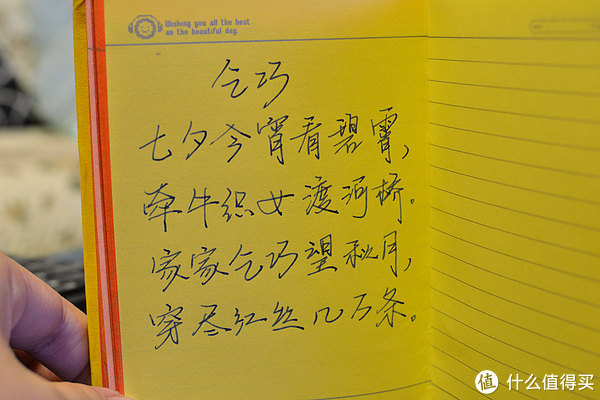 Wishing you all the best
on the beautiful day.
乞巧
七夕今宵看碧霄，
牵牛织女渡河桥。
家家乞巧望秋月，
穿尽红丝几万条。
值 什么值得买